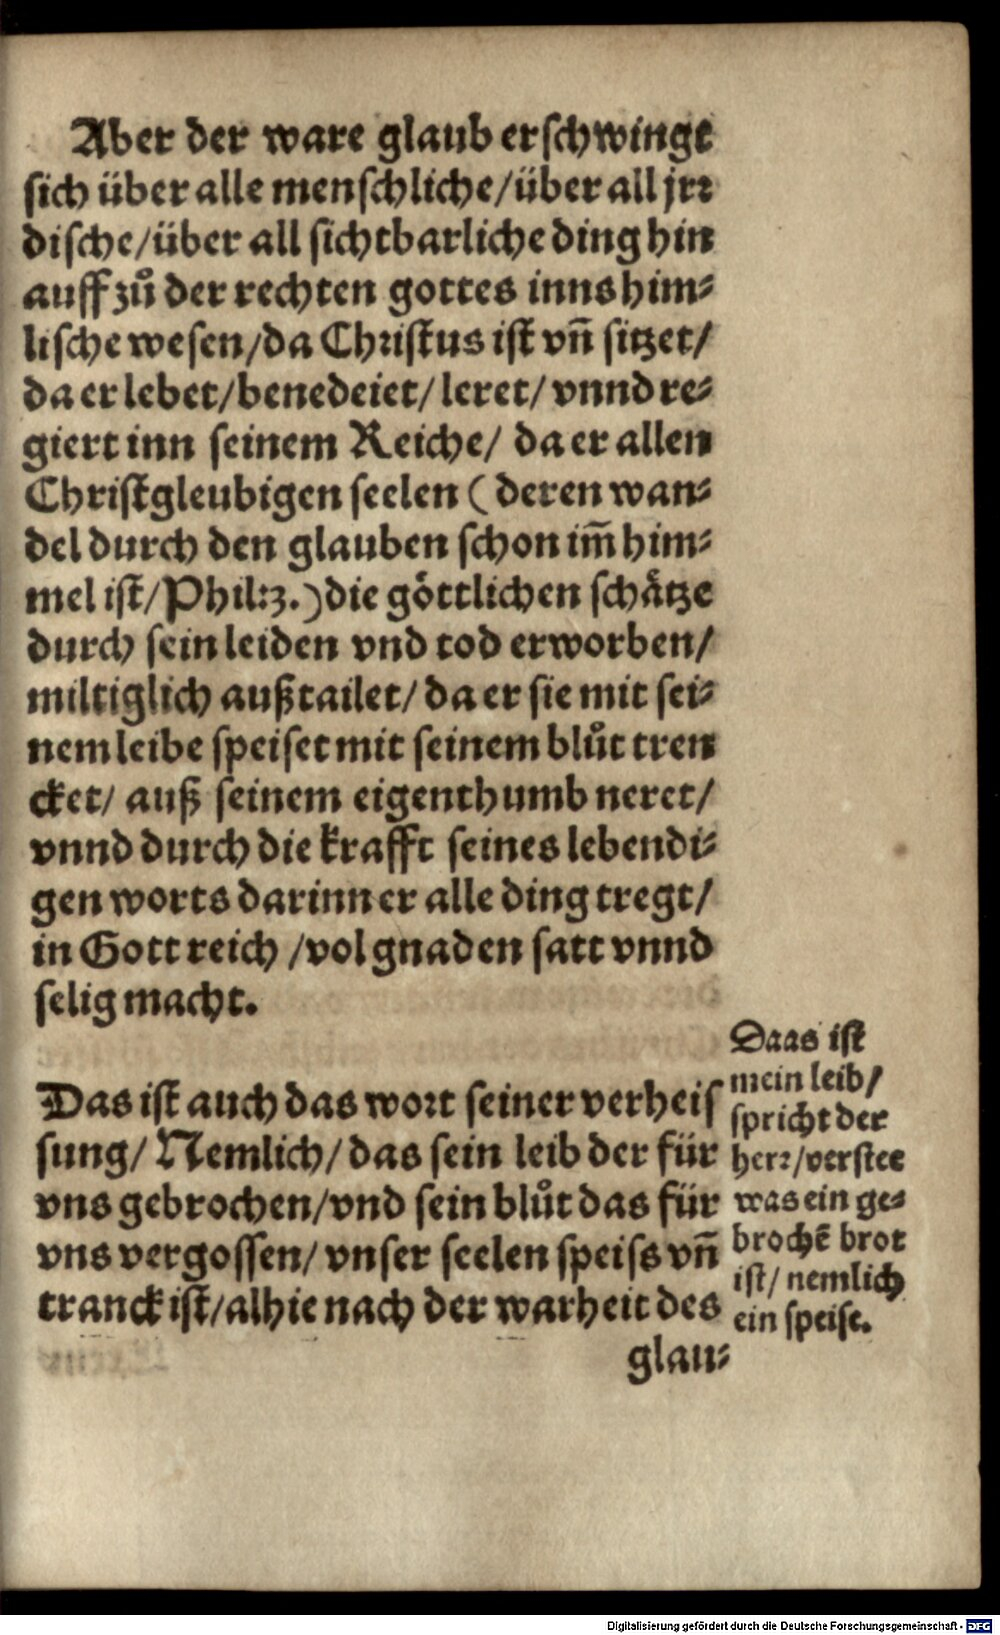 Aber der ware glaub erschwingt
sich über alle menschliche/über all jrr
dische/über all sichtbarliche ding hin
auff zů der rechten gottes inns him⸗
lische wesen/da Christus ist vn̄ sitzet/
da er lebet/benedeiet/leret/vnnd re⸗
giert inn seinem Reiche/ da er allen
Christgleubigen seelen (deren wan⸗
del durch den glauben schon im̄ him⸗
mel ist/Phil:3.) die göttlichen schätze
durch sein leiden vnd tod erworben/
miltiglich außtailet/da er sie mit sei⸗
nem leibe speiset mit seinem blůt tren
cket/ auß seinem eigenthumb neret/
vnnd durch die krafft seines lebendi⸗
gen worts darinn er alle ding tregt/
in Gott reich /vol gnaden satt vnnd
selig macht.
Das ist auch das wort seiner verheis
sung/Nemlich/das sein leib der für
vns gebrochen/vnd sein blůt das für
vns vergossen/vnser seelen speiss vn̄
tranck ist/alhie nach der warheit des
glau⸗
Daas ist
mein leib/
spricht der
herr/verstet
was ein ge⸗
brochē brot
ist/ nemlich
ein speise.
Digitalisierung gefördert durch die Deutsche Forschungsgemeinschaft - DFG